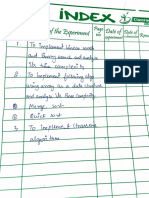 INDEX
of the Experiment
Page No.
Date of Experiment
Date of
1. To implement linear search
and Binary search and analyze
its time complexity
2. To Implement following algo
using array as a data structure
and analyze its time complexity
Merge sort
Quick sort
3. To Implement Strassens
algorithm